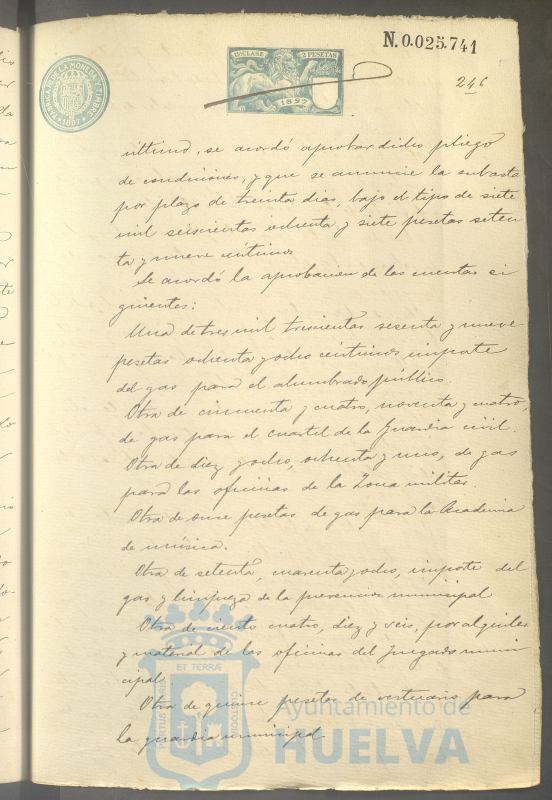 N.0.025.741
11ª CLASE 2 PESETAS
1897
FABRICA DE LA MONEDA Y TIMBRE
1897
246
último, se acordó aprobar dicho pliego
de condiciones, y que se anuncie la subasta
por plazo de treinta dias, bajo el tipo de siete
mil seiscientas ochenta y siete pesetas seten
ta y nueve céntimos
Se acordó la aprobacion de las cuentas si
guientes:
Una de tres mil trescientas sesenta y nueve
pesetas ochenta y ocho céntimos importe
del gas para el alumbrado público.
Otra de cincuenta y cuatro, noventa y cuatro,
de gas para el cuartel de la Guardia civil.
Otra de diez y ocho, ochenta y uno, de gas
para las oficinas de la Zona militar
Otra de once pesetas de gas para la Academia
de música.
Otra de setenta, cuarenta y ocho, importe del
gas y limpieza de la prevencion municipal
Otra de ciento cuatro, diez y seis, por alquiler
y material de las oficinas del Juzgado muni
cipal
Otra de quince pesetas de vestuario para
la guardia municipal.
PORTUS MARIS ET TERRÆ CUSTODIA
Ayuntamiento de
HUELVA